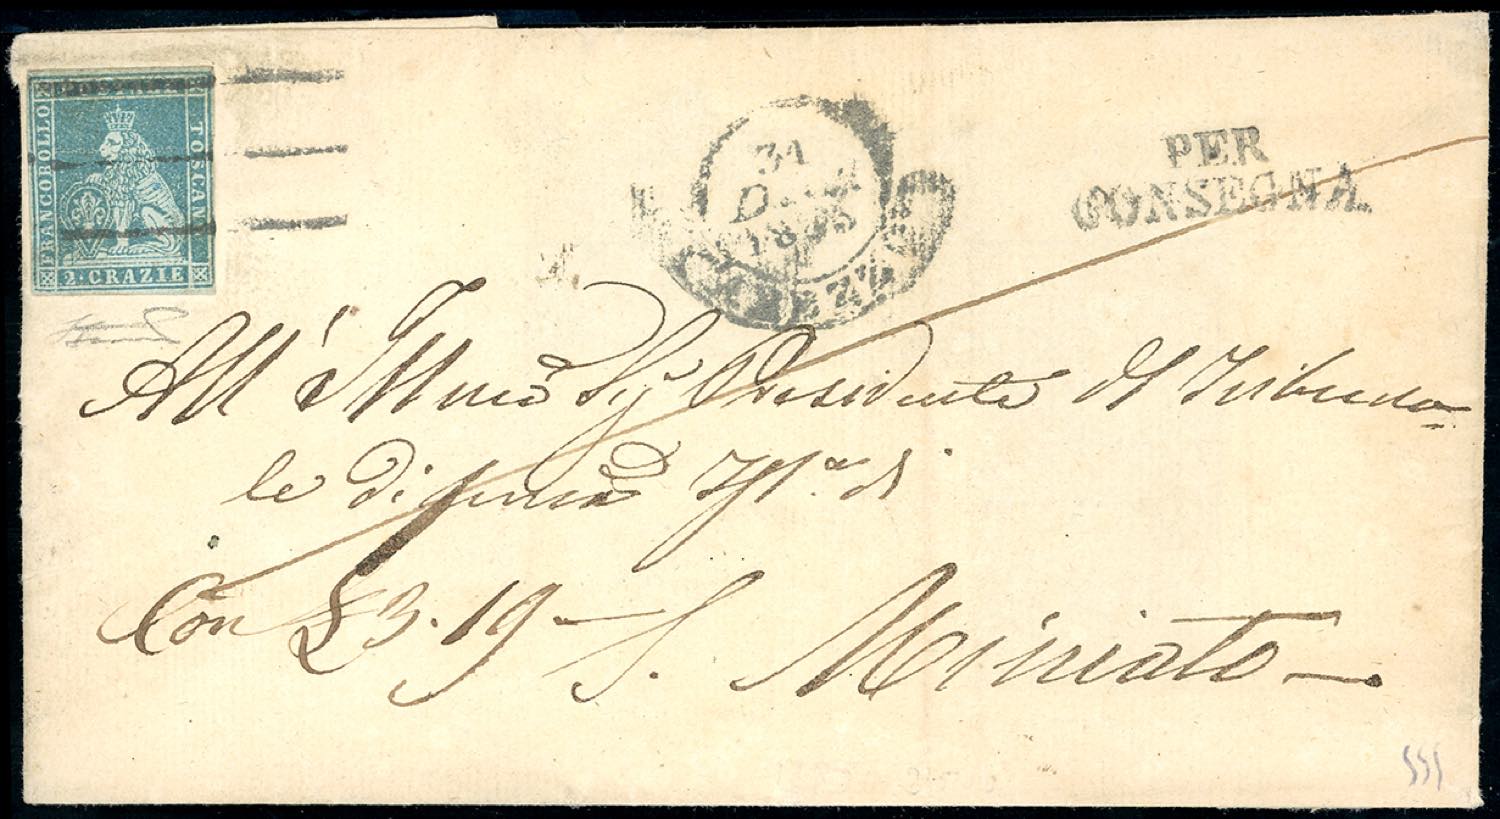 FRANCOBOLLO
TOSCANO
2·CRAZIE
31
D
18
PER
CONSEGNA
All' Illmo Sig Presidente del Tribuna=
le di prima Iza. di
Con £ 3. 19 — S. Miniato —.